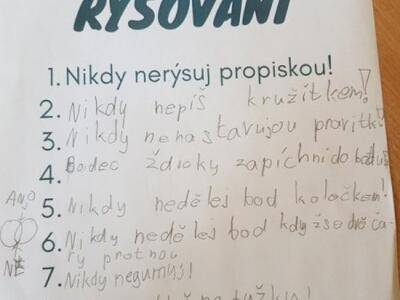 RÝSOVÁNÍ
1. Nikdy nerýsuj propiskou!
2. Nikdy nepiš kružítkem!
3. Nikdy nenastavujou pravitk!
4. Bodec zapichni do
5. Nikdy neděles bod kolečkem!
ANO
6. Nikdy neděles bod kdy žse dvě ča
ry protnou
NE
7. Nikdy negumuj!